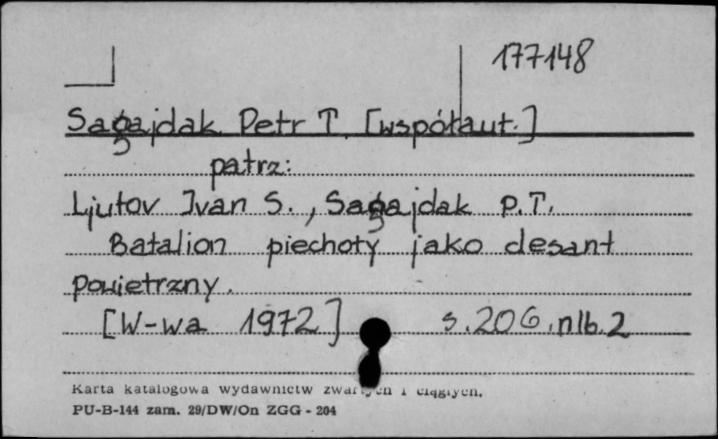 177148
Sagajdak Petr T. [współaut.]
patrz:
Ljutov Ivan S., Sagajdak P.T.
Batalion piechoty jako desant
powietrzny.
[W-wa 1972] s. 206, nlb. 2
Karta katalogowa wydawnictw zwartych i ciągłych.
PU-B-144 zam. 29/DW/On ZGG - 204